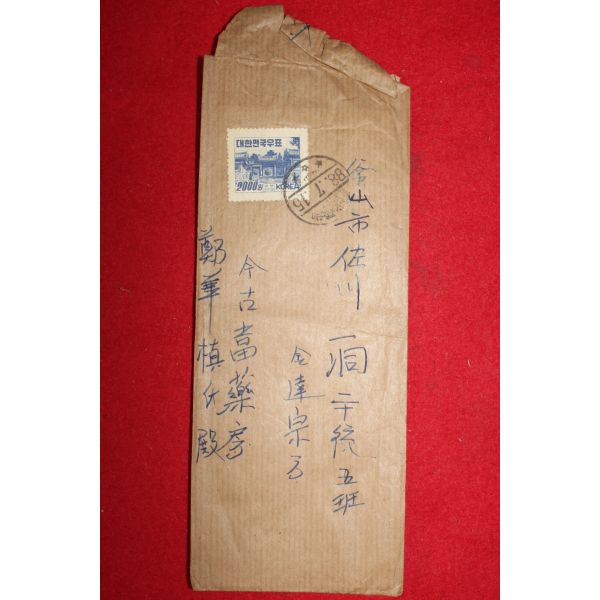 釜山市 佐川 一洞 二十統 五班
金達宗 方
今古當藥房
鄭華槙氏 殿
대한민국우표
2000원 KOREA
86.7.15